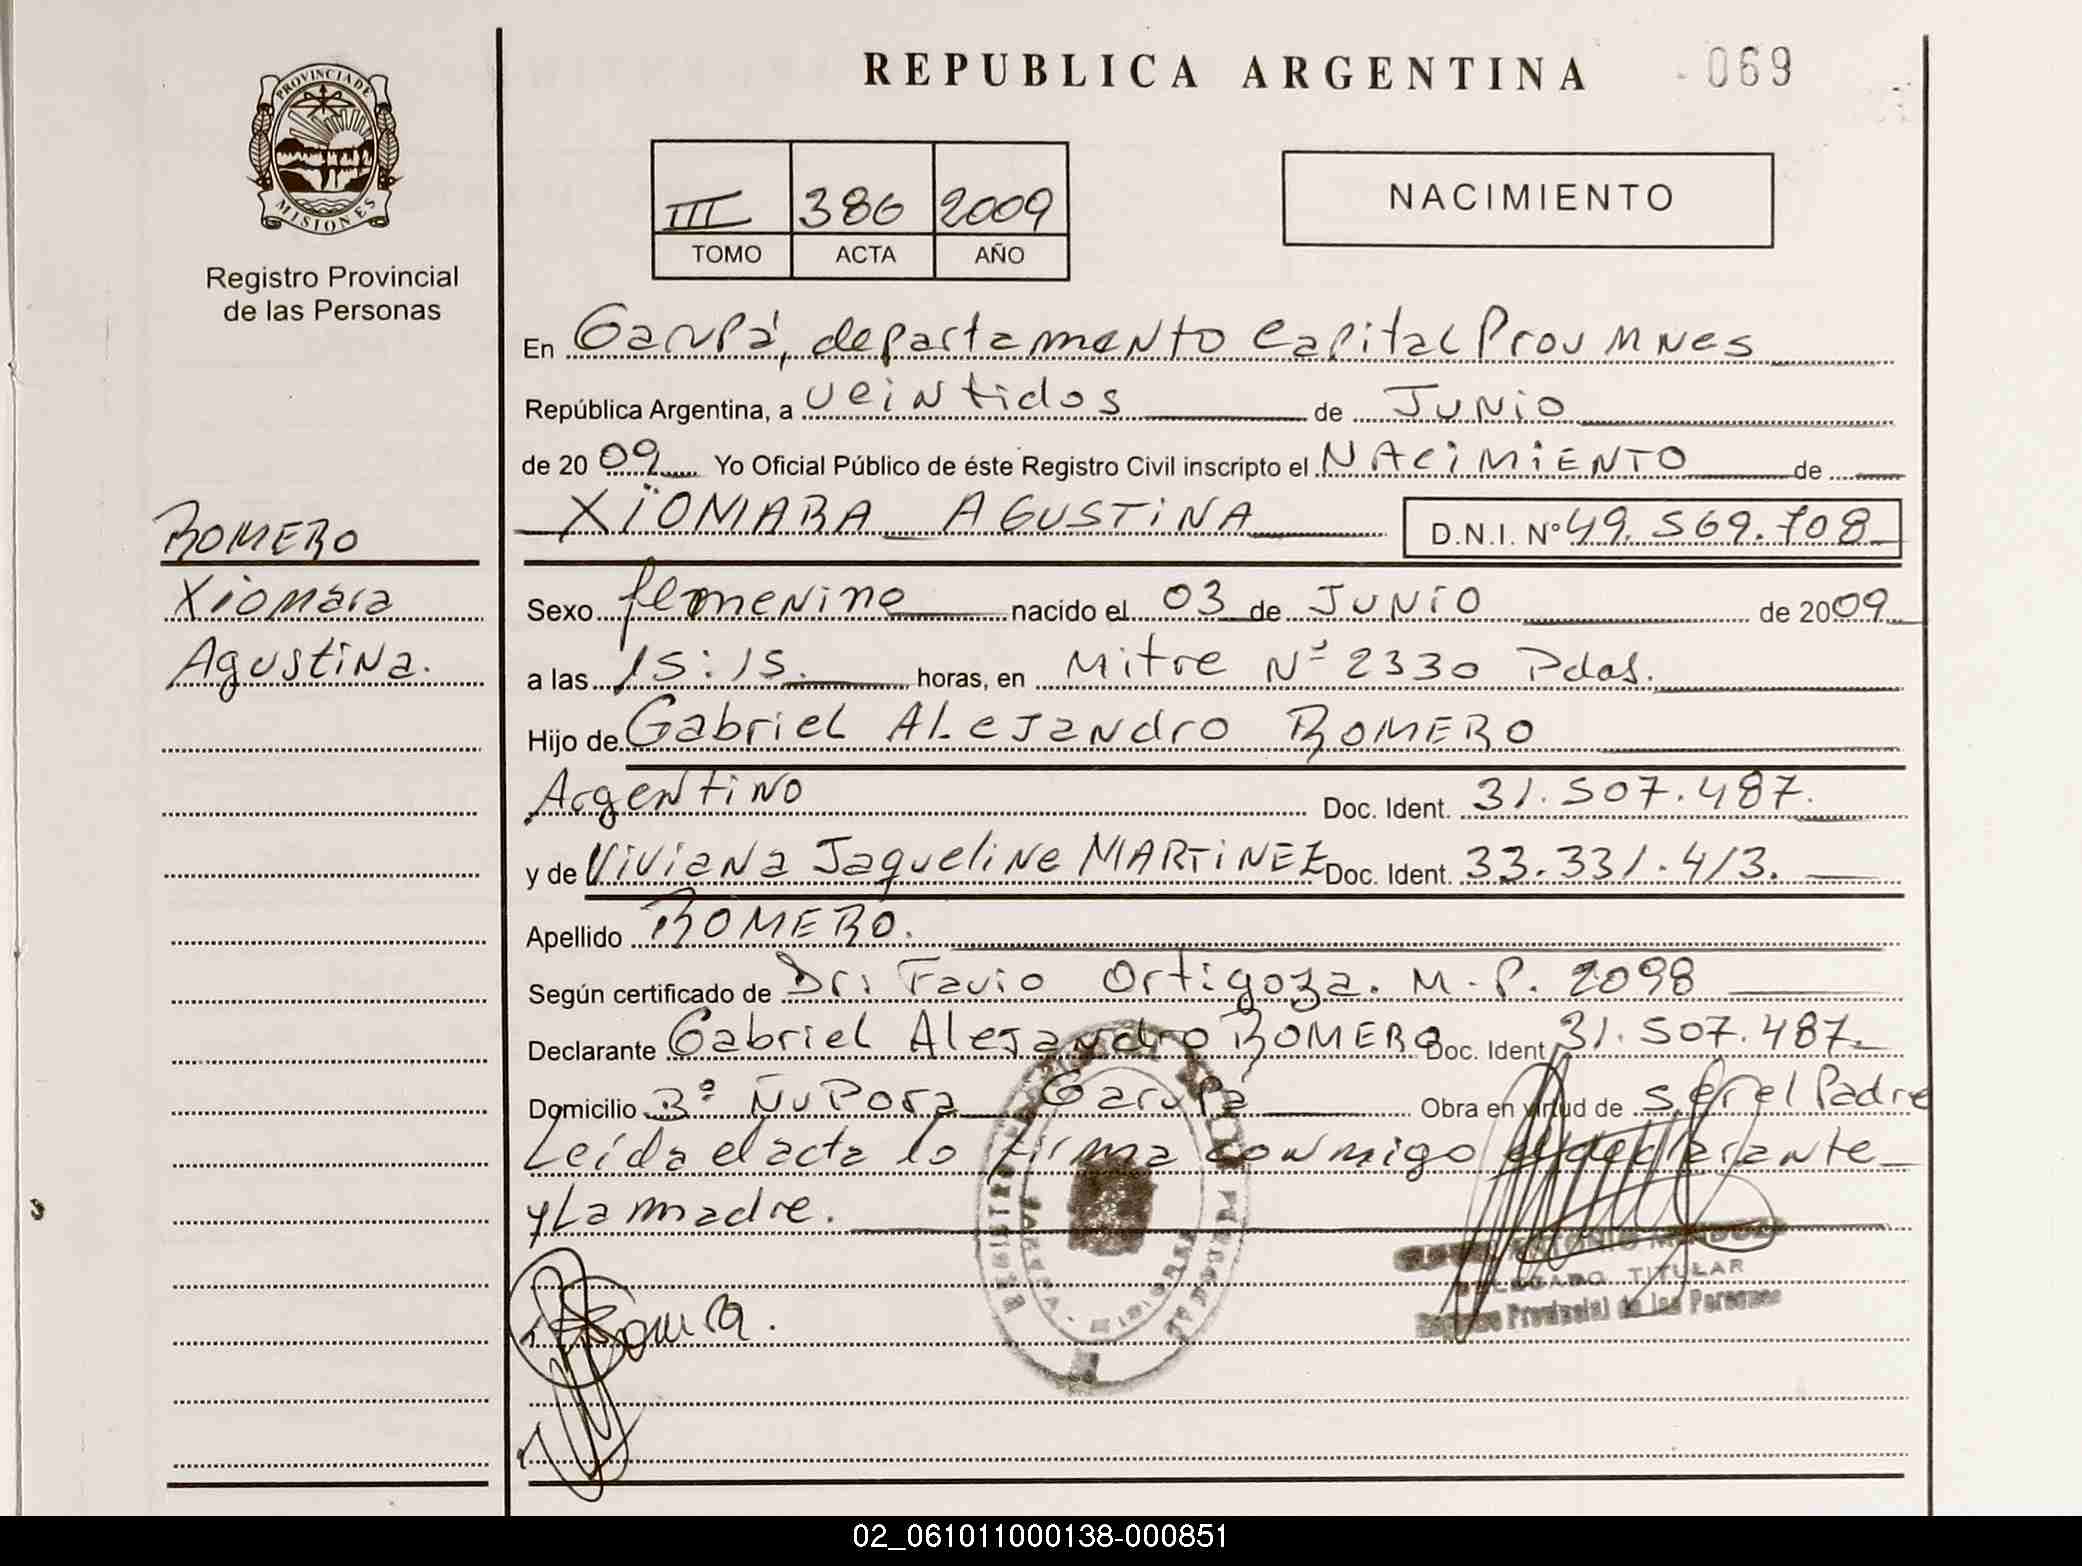 REPUBLICA ARGENTINA
069
PROVINCIA DE
MISIONES
Registro Provincial
de las Personas
III 386 2009
TOMO ACTA AÑO
NACIMIENTO
En Garupá, departamento Capital Prov Mnes
República Argentina, a veintidos de Junio
de 2009 Yo Oficial Público de éste Registro Civil inscripto el NACIMIENTO de
XIOMARA AGUSTINA D.N.I. Nº 49.569.708
ROMERO
Xiomara
Agustina.
Sexo femenino nacido el 03 de Junio de 2009
a las 15:15. horas, en Mitre Nº 2330 Pdas.
Hijo de Gabriel Alejandro ROMERO
Argentino Doc. Ident. 31.507.487.
y de Viviana Jaqueline MARTINEZ Doc. Ident. 33.331.413.
Apellido ROMERO.
Según certificado de Dr: Favio Ortigoza. M.P. 2098
Declarante Gabriel Alejandro ROMERO Doc. Ident 31.507.487.
Domicilio Bº Ñu Pora Garupá Obra en virtud de ser el Padre
Leída el acta lo firma conmigo el declarante
y La madre.
ANTONIO
DELEGADO TITULAR
Registro Provincial de las Personas
02_061011000138-000851